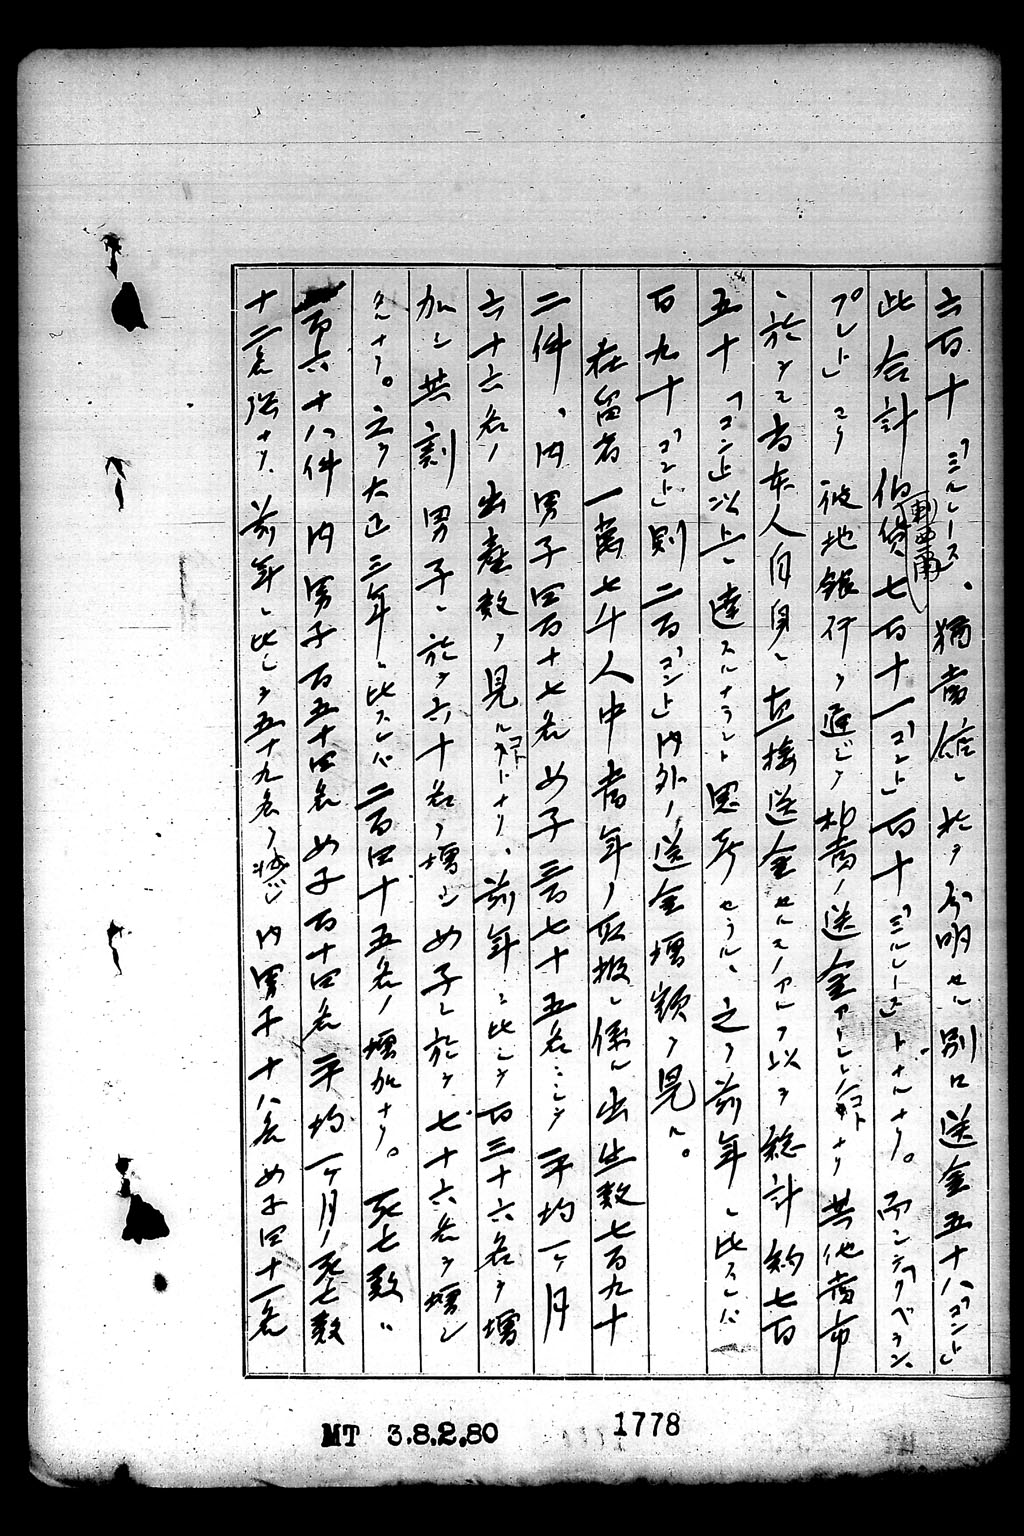 六百十「ミルレース」、獨當館ニ於テ分明セル別口送金五十八「コント」
此合計伯貨(剌西爾)七百十一「コント」百十「ミルレース」トナルナリ。而シテ「リベラン、
プレト」ヨリ彼地銀行ヲ通ジテ相當ノ送金アリシコトナリ其他當市
ニ於テモ当本人自身ニ直接送金セルモノアルヲ以テ総計約七百
五十「コント」以上ニ達スルナラント思考セラル、之ヲ前年ニ比スレバ
百九十「コント」則二百「コント」内外ノ送金増額ヲ見ル。
在留者一萬七千人中當年ノ取扱ニ係ル出生数七百九十
二件、内男子四百十七名女子三百七十五名ニシテ平均一ヶ月
六十六名ノ出産数ヲ見ルコトナリ、前年ニ比シテ百三十六名ヲ増
加シ其割男子ニ於テ六十名ヲ増シ女子ニ於テ七十六名ヲ増シ
タルナリ。之ヲ大正三年ニ比スレバ二百四十五名ノ増加ナリ。死亡数ハ
二百六十八件内男子百五十四名女子百十四名平均一ヶ月ノ死亡数
十二名強ナリ、前年ニ比シテ五十九名ヲ減ジ内男子十八名女子四十一名
MT 3.8.2.80 1778